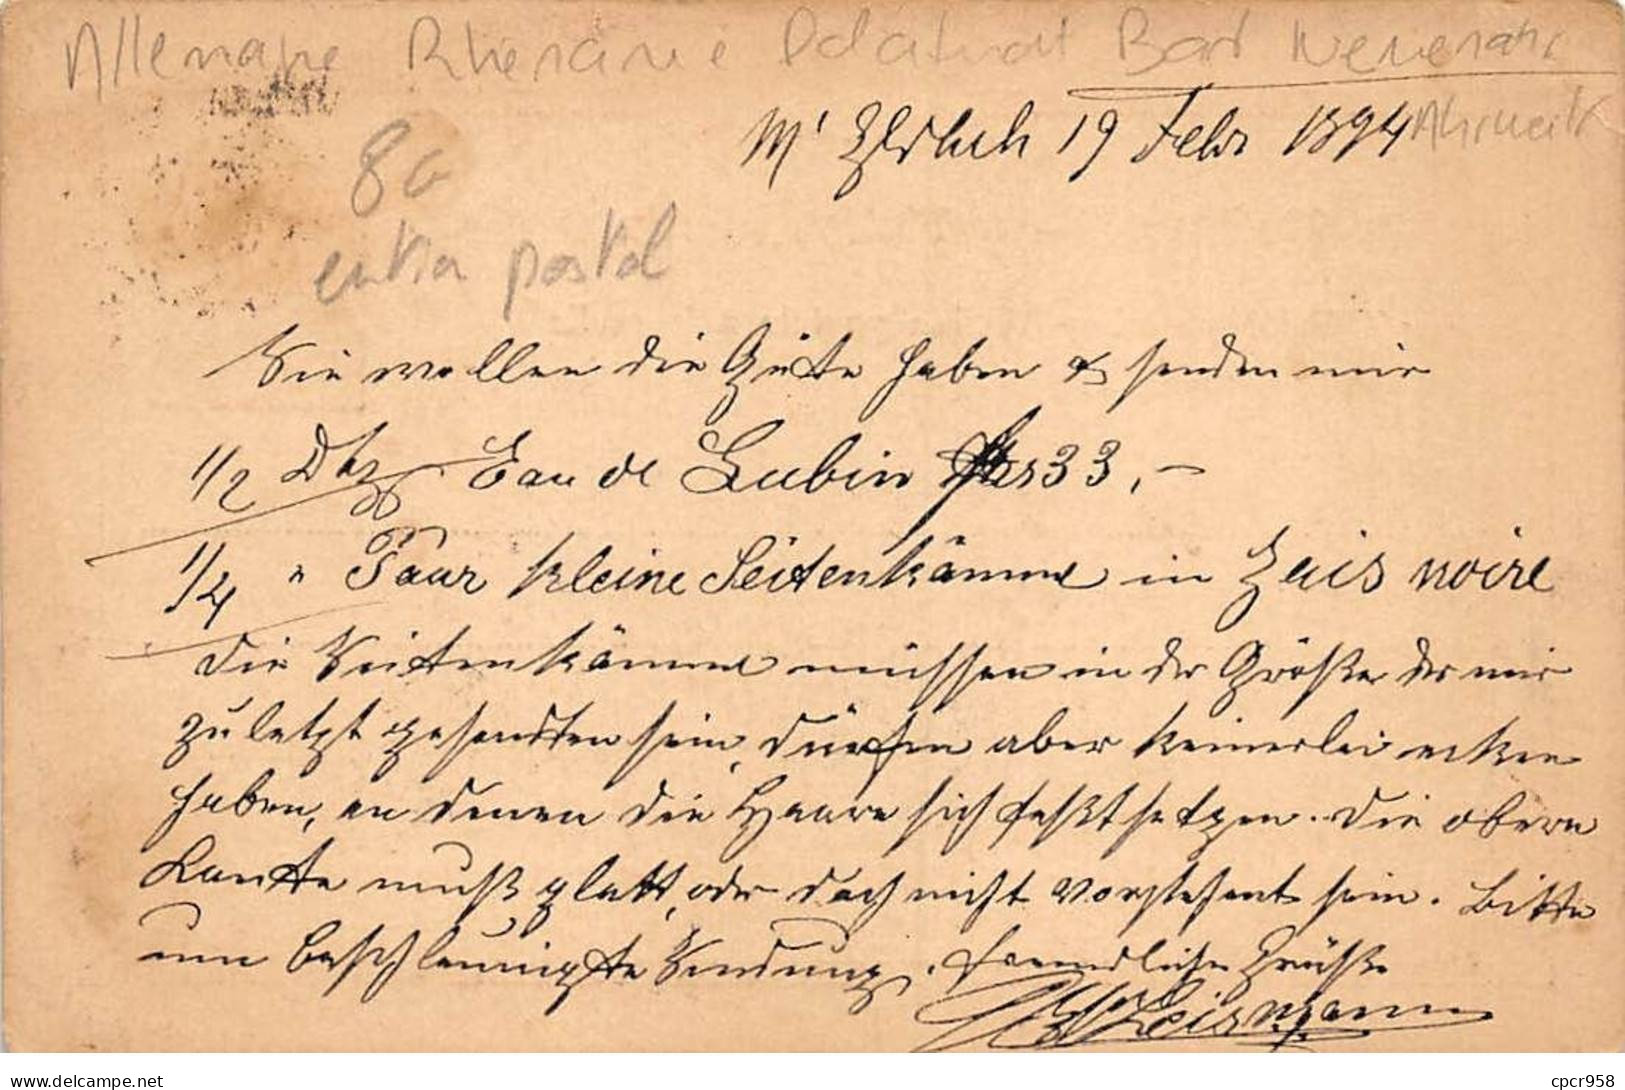 Allemagne Rhénanie Palatinat Bad Neuenahr
Ahrweiler
M' Gladbach 19 Febr 1894
8€
entier postal
Sie wollen die Güte haben & senden mir
1/2 Dtz Eau de Lubin frcs 33,-
1/4 " Paar kleine Seitenkämme in Zeis noire
Die Seitenkämme müssen in der Größe der mir
zuletzt gesandten sein, dürfen aber keinerlei ecken
haben, an denen die Haare sich festsetzen. Die obere
Kante muß platt, oder doch nicht vorstehend sein. Bitte
um beschleunigte Sendung. freundliche Grüße
Leismann
cpcr958